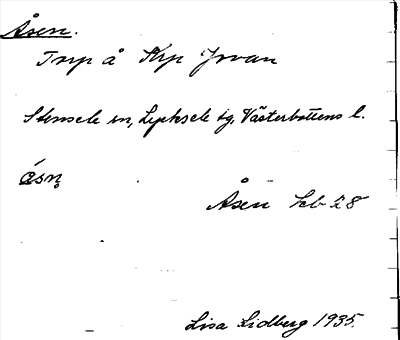 Åsen.
Torp å Krp Joran
Stensele sn, Lycksele tg, Västerbottens l.
åsn̥
Åsen Jeb 28
Lisa Lidberg 1935.